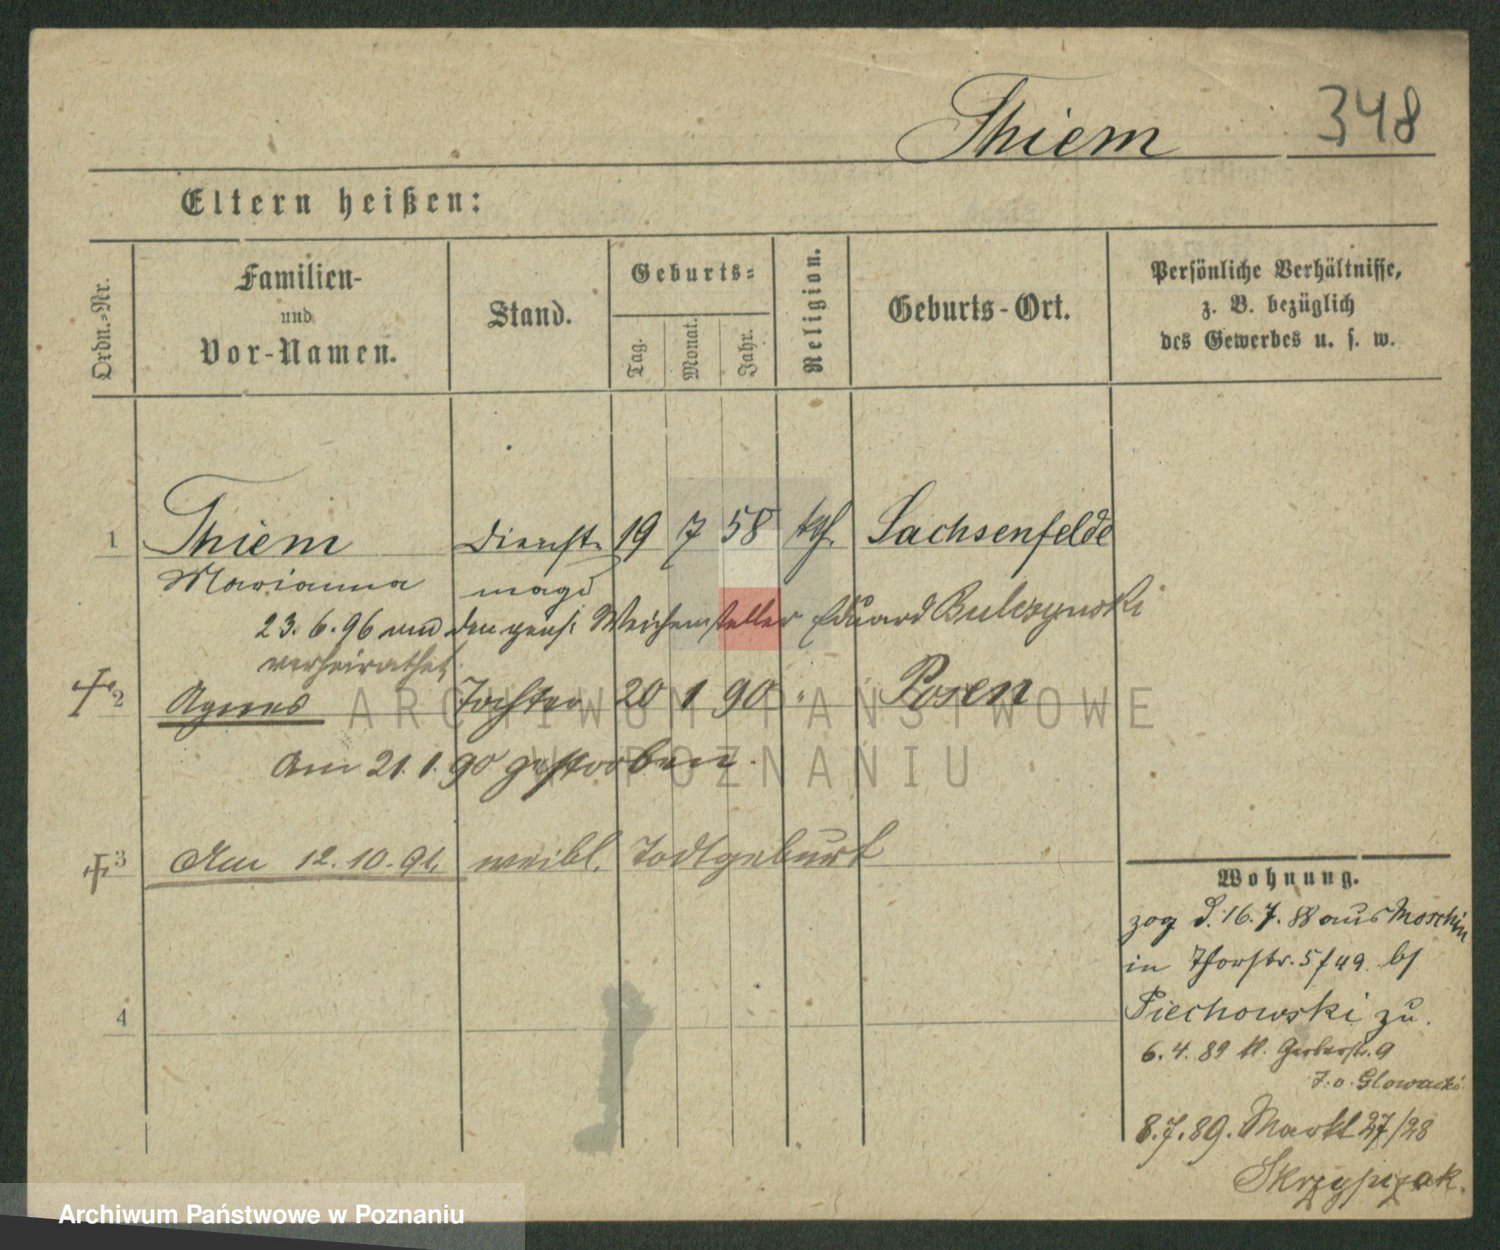 Thiem 348
Eltern heißen:
Ordn.-Nr.
Familien-
und
Vor-Namen.
Stand.
Geburts-
Tag.
Monat.
Jahr.
Religion.
Geburts-Ort.
Persönliche Verhältnisse,
z. B. bezüglich
des Gewerbes u. s. w.
1 Thiem Dienst- 19 7 58 kth. Sachsenfelde
Marianna magd
23.6.96 den pens. Weichensteller Eduard Bulczynski
verheirathet
2 Agnes Tochter 20 1 90 " Posen
Am 21.1.90 gestorben.
3 Am 12.10.91. weibl. Todtgeburt
4
Wohnung.
zog d. 16.7.88 aus Moschin
in Thorstr. 5/49. bs
Piechowski zu.
6.4.89 kl. Gerberstr. 9
Glowacki
8.7.89. Markt 27/28
Skrzypczak.
ARCHIWUM PAŃSTWOWE
W POZNANIU
Archiwum Państwowe w Poznaniu